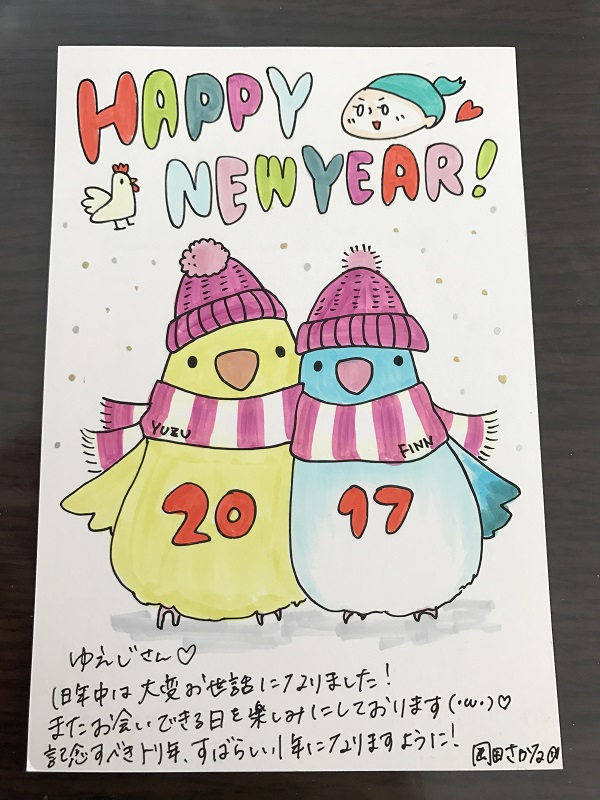 HAPPY
NEW YEAR!
YUZU
FINN
20 17
ゆえじさん♡
旧年中は大変お世話になりました!
またお会いできる日を楽しみにしております(・ω・)♡
記念すべきトリ年、すばらしい1年になりますように!
岡田さ